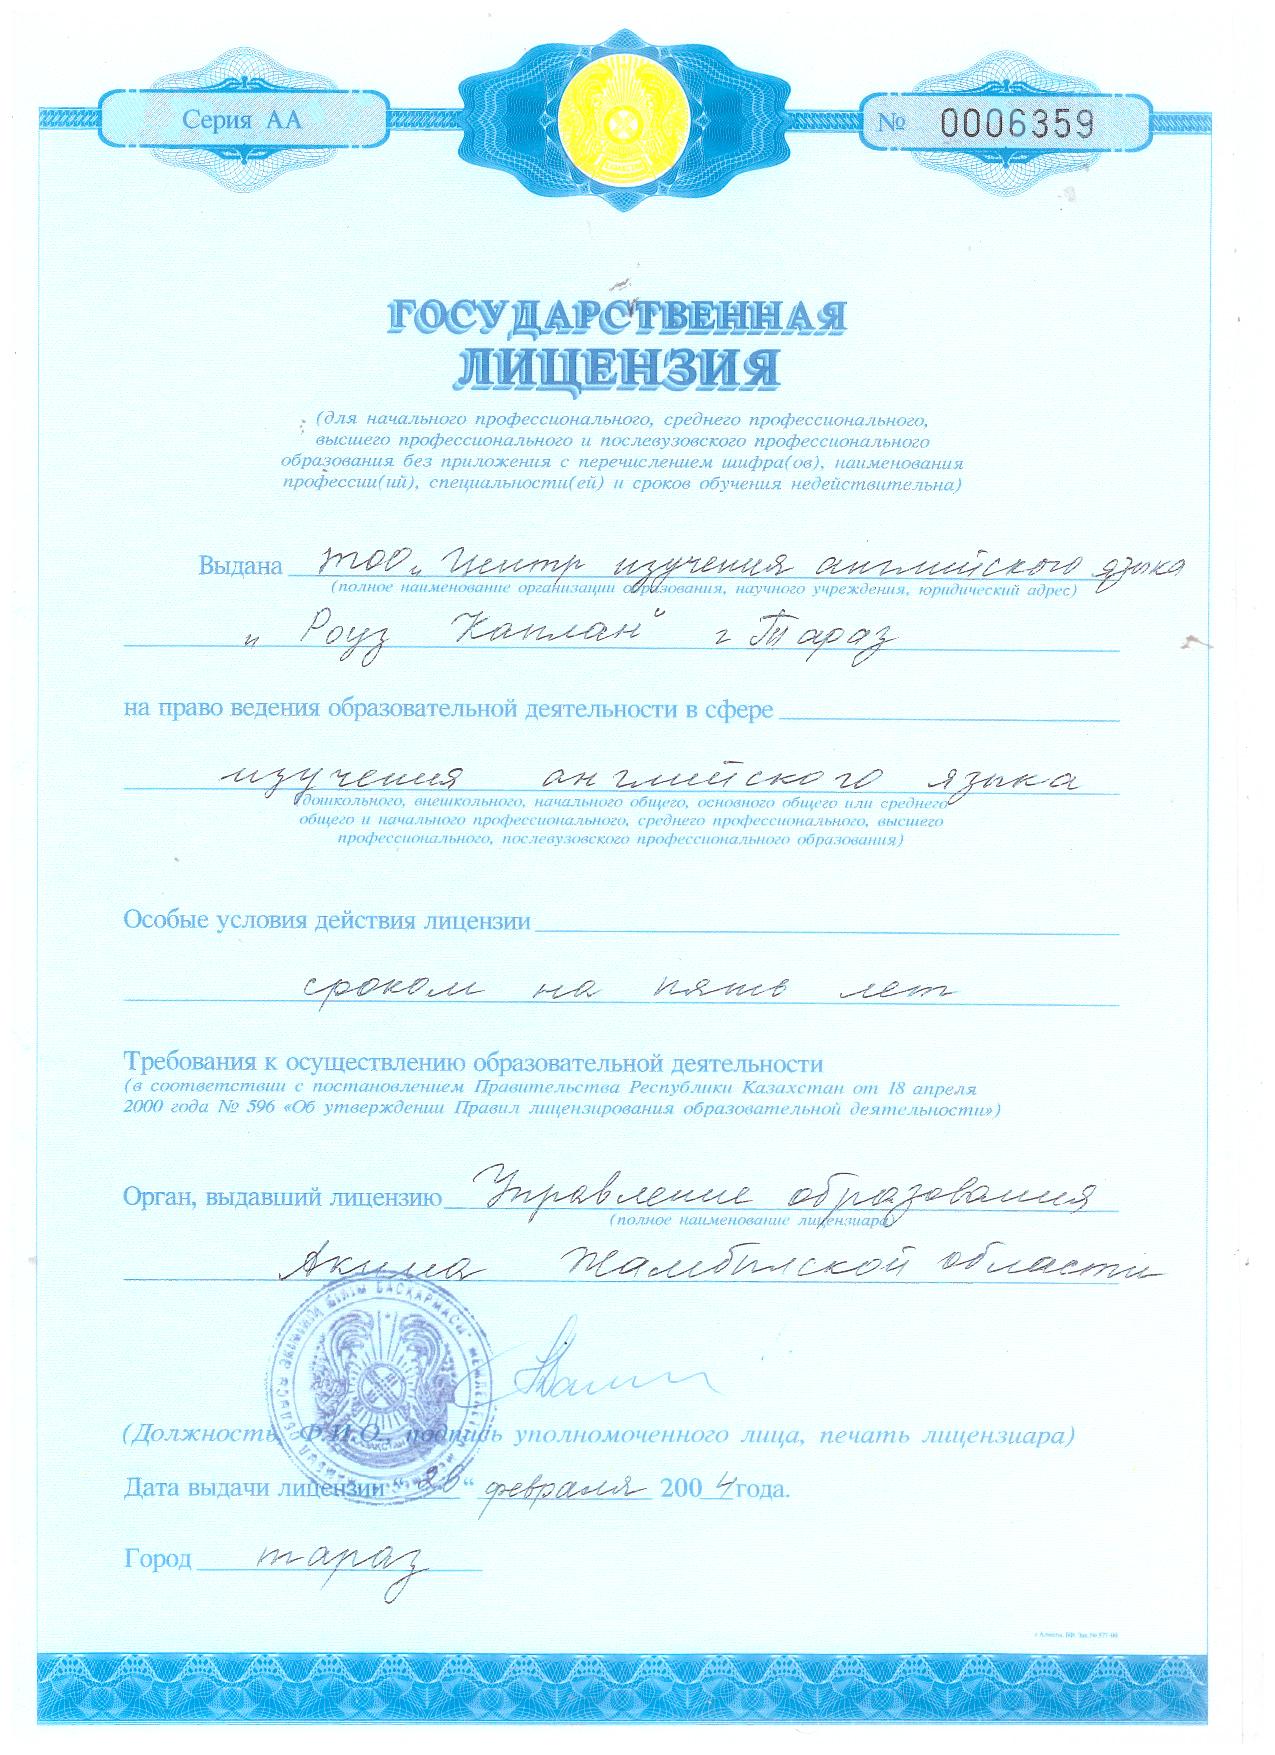 Серия АА
№ 0006359
ГОСУДАРСТВЕННАЯ
ЛИЦЕНЗИЯ
(для начального профессионального, среднего профессионального,
высшего профессионального и послевузовского профессионального
образования без приложения с перечислением шифра(ов), наименования
профессии(ий), специальности(ей) и сроков обучения недействительна)
Выдана ТОО „Центр изучения английского языка
(полное наименование организации образования, научного учреждения, юридический адрес)
„Роуз Каплан“ г Тараз
на право ведения образовательной деятельности в сфере
изучения английского языка
(дошкольного, внешкольного, начального общего, основного общего или среднего
общего и начального профессионального, среднего профессионального, высшего
профессионального, послевузовского профессионального образования)
Особые условия действия лицензии
сроком на пять лет
Требования к осуществлению образовательной деятельности
(в соответствии с постановлением Правительства Республики Казахстан от 18 апреля
2000 года № 596 «Об утверждении Правил лицензирования образовательной деятельности»)
Орган, выдавший лицензию Управление образования
(полное наименование лицензиара)
Акима Жамбылской области
(Должность, Ф.И.О., подпись уполномоченного лица, печать лицензиара)
Дата выдачи лицензии “ “ февраля 2004 года.
Город Тараз